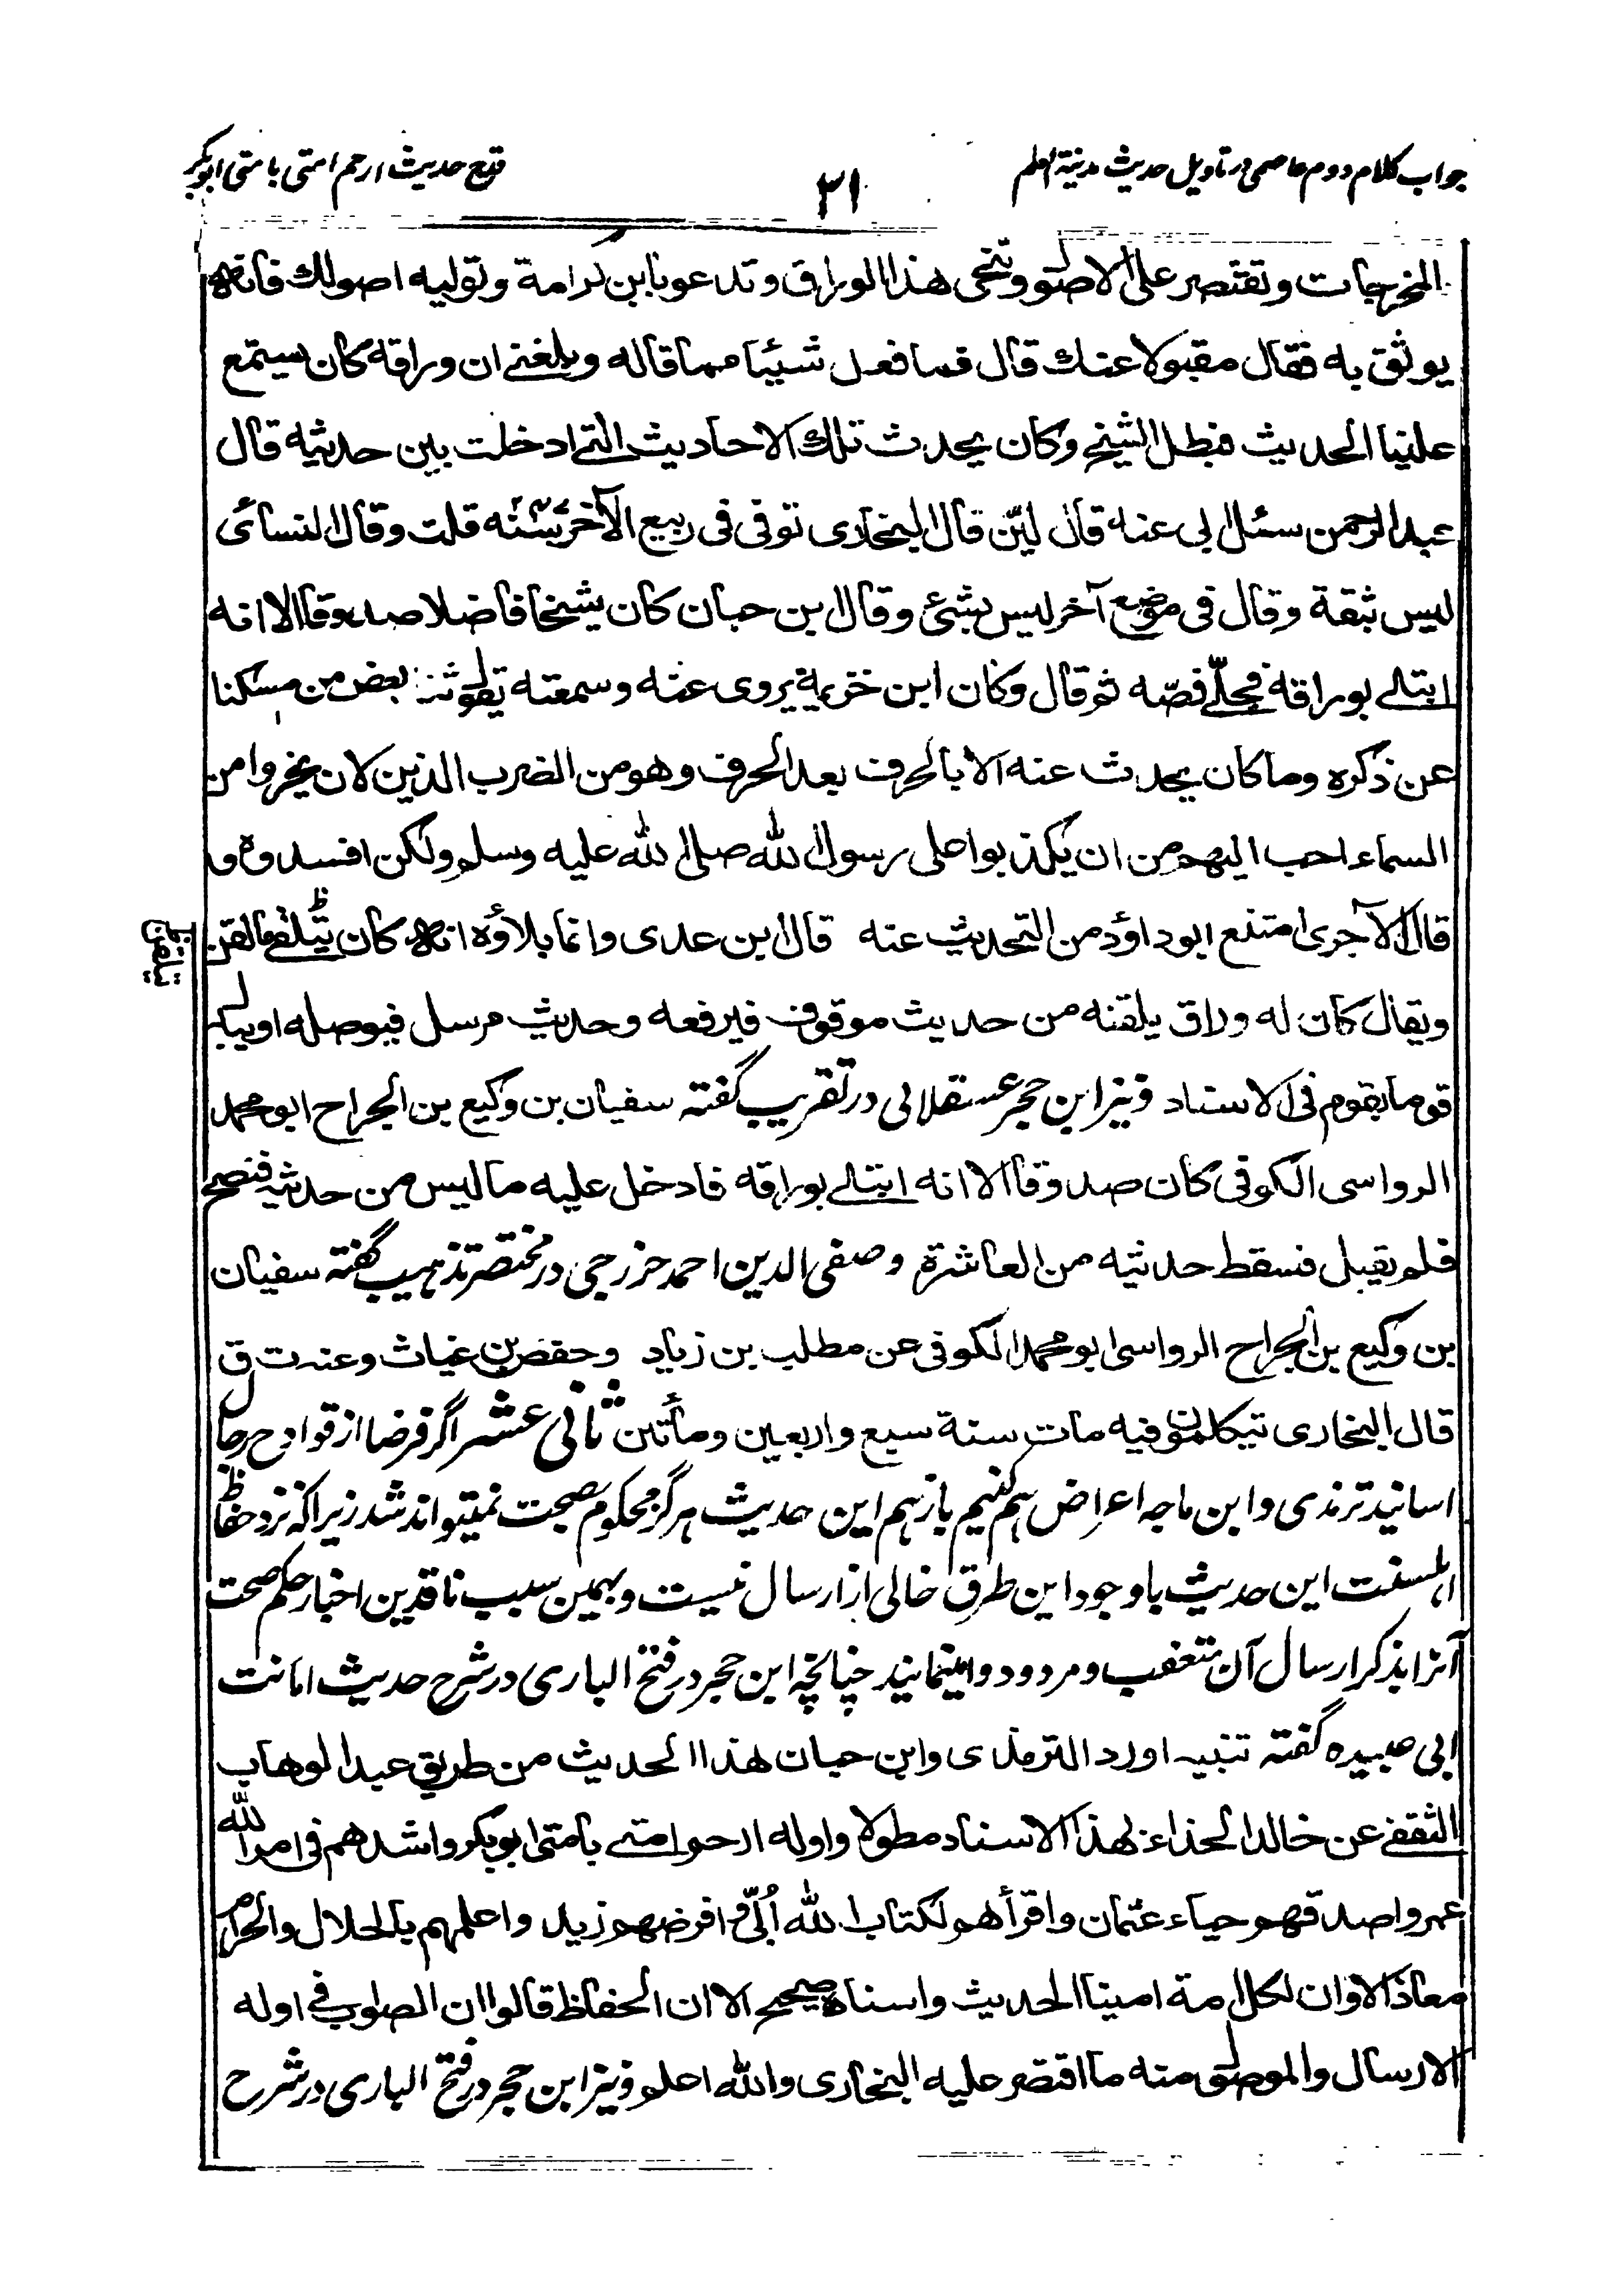 جواب کلام دوم عاصمی در تاویل حدیث مدینة العلم
۳۱
قدح حدیث ارحم امتی بامتی ابوبکر
المخرجات وتقتصر على الاصول وتنحى هذا الوراق وتدعو بابن كرامة وتوليه اصولك فانه
يوثق به فقال مقبولا عنك قال فما فعل شيئا مما قاله وبلغنے ان وراقه كان يستمع
علينا الحديث فبطل الشيخ وكان يحدث تلك الاحاديث التے ادخلت بين حديثه قال
عبد الرحمن سئل ابى عنه قال ليّن قال البخارى توفى فى ربيع الآخر سنه قلت وقال النسائى
ليس بثقة وقال فى موضع آخر ليس بشئ وقال ابن حبان كان شيخا فاضلا صدوقا الا انه
ابتلے بوراقه فحكے قصّه ثم قال وكان ابن خزيمة يروى عنه وسمعته يقول ثنا بعض من مسكنا
عن ذكره وما كان يحدث عنه الا بالحرف بعد الحرف وهو من الضرب الذين لان يخروا من
السماء احب اليهم من ان يكذبوا على رسول الله صلى الله عليه وسلم ولكن افسدوه و
قال الآجرى امتنع ابو داؤد من التحديث عنه قال ابن عدى وانما بلاؤه انه كان يتلقے ما لقن
ويقال كان له وراق يلقنه من حديث موقوف فيرفعه وحديث مرسل فيوصله او يبدل
قوما بقوم فى الاسناد ونیز ابن حجر عسقلانی در تقریب گفته سفيان بن وكيع بن الجراح ابو محمد
الرواسى الكوفى كان صدوقا الا انه ابتلے بوراقه فادخل عليه ما ليس من حديثه فنصح
فلم يقبل فسقط حديثه من العاشرة وصفی الدین احمد خزرجی در مختصر تذهیب گفته سفيان
بن وكيع بن الجراح الرواسى ابو محمد الكوفى عن مطلب بن زياد وحفص بن غياث وعنه ت ق
قال البخارى يتكلمون فيه مات سنة سبع واربعين ومأتين ثانی عشر اگر فرضا از قوادح رجال
اسانید ترمذی وابن ماجه اعراض هم کنیم باز هم این حدیث هرگز محکوم بصحت نمیتواند شد زیرا که نزد حفاظ
اهلسنت این حدیث باوجود این طرق خالی از ارسال نیست وبهمین سبب ناقدین اخبار حکم صحت
آنرا بذکر ارسال آن متعقب ومردود وامینمایند چنانچه ابن حجر در فتح الباری در شرح حدیث امانت
ابی عبیده گفته تنبيه اورد الترمذى وابن حبان هذا الحديث من طريق عبد الوهاب
الثقفے عن خالد الحذاء بهذا الاسناد مطولا واوله ارحم امتے بامتى ابو بكر واشدهم فى امر الله
عمر واصدقهم حياء عثمان واقرأهم لكتاب الله اُبَىّ وافرضهم زيد واعلمهم بالحلال والحرام
معاذ الا وان لكل امة امينا الحديث واسناده صحيح الا ان الحفاظ قالوا ان الصواب فى اوله
الارسال والموصول منه ما اقتصر عليه البخارى والله اعلم ونیز ابن حجر در فتح الباری در شرح